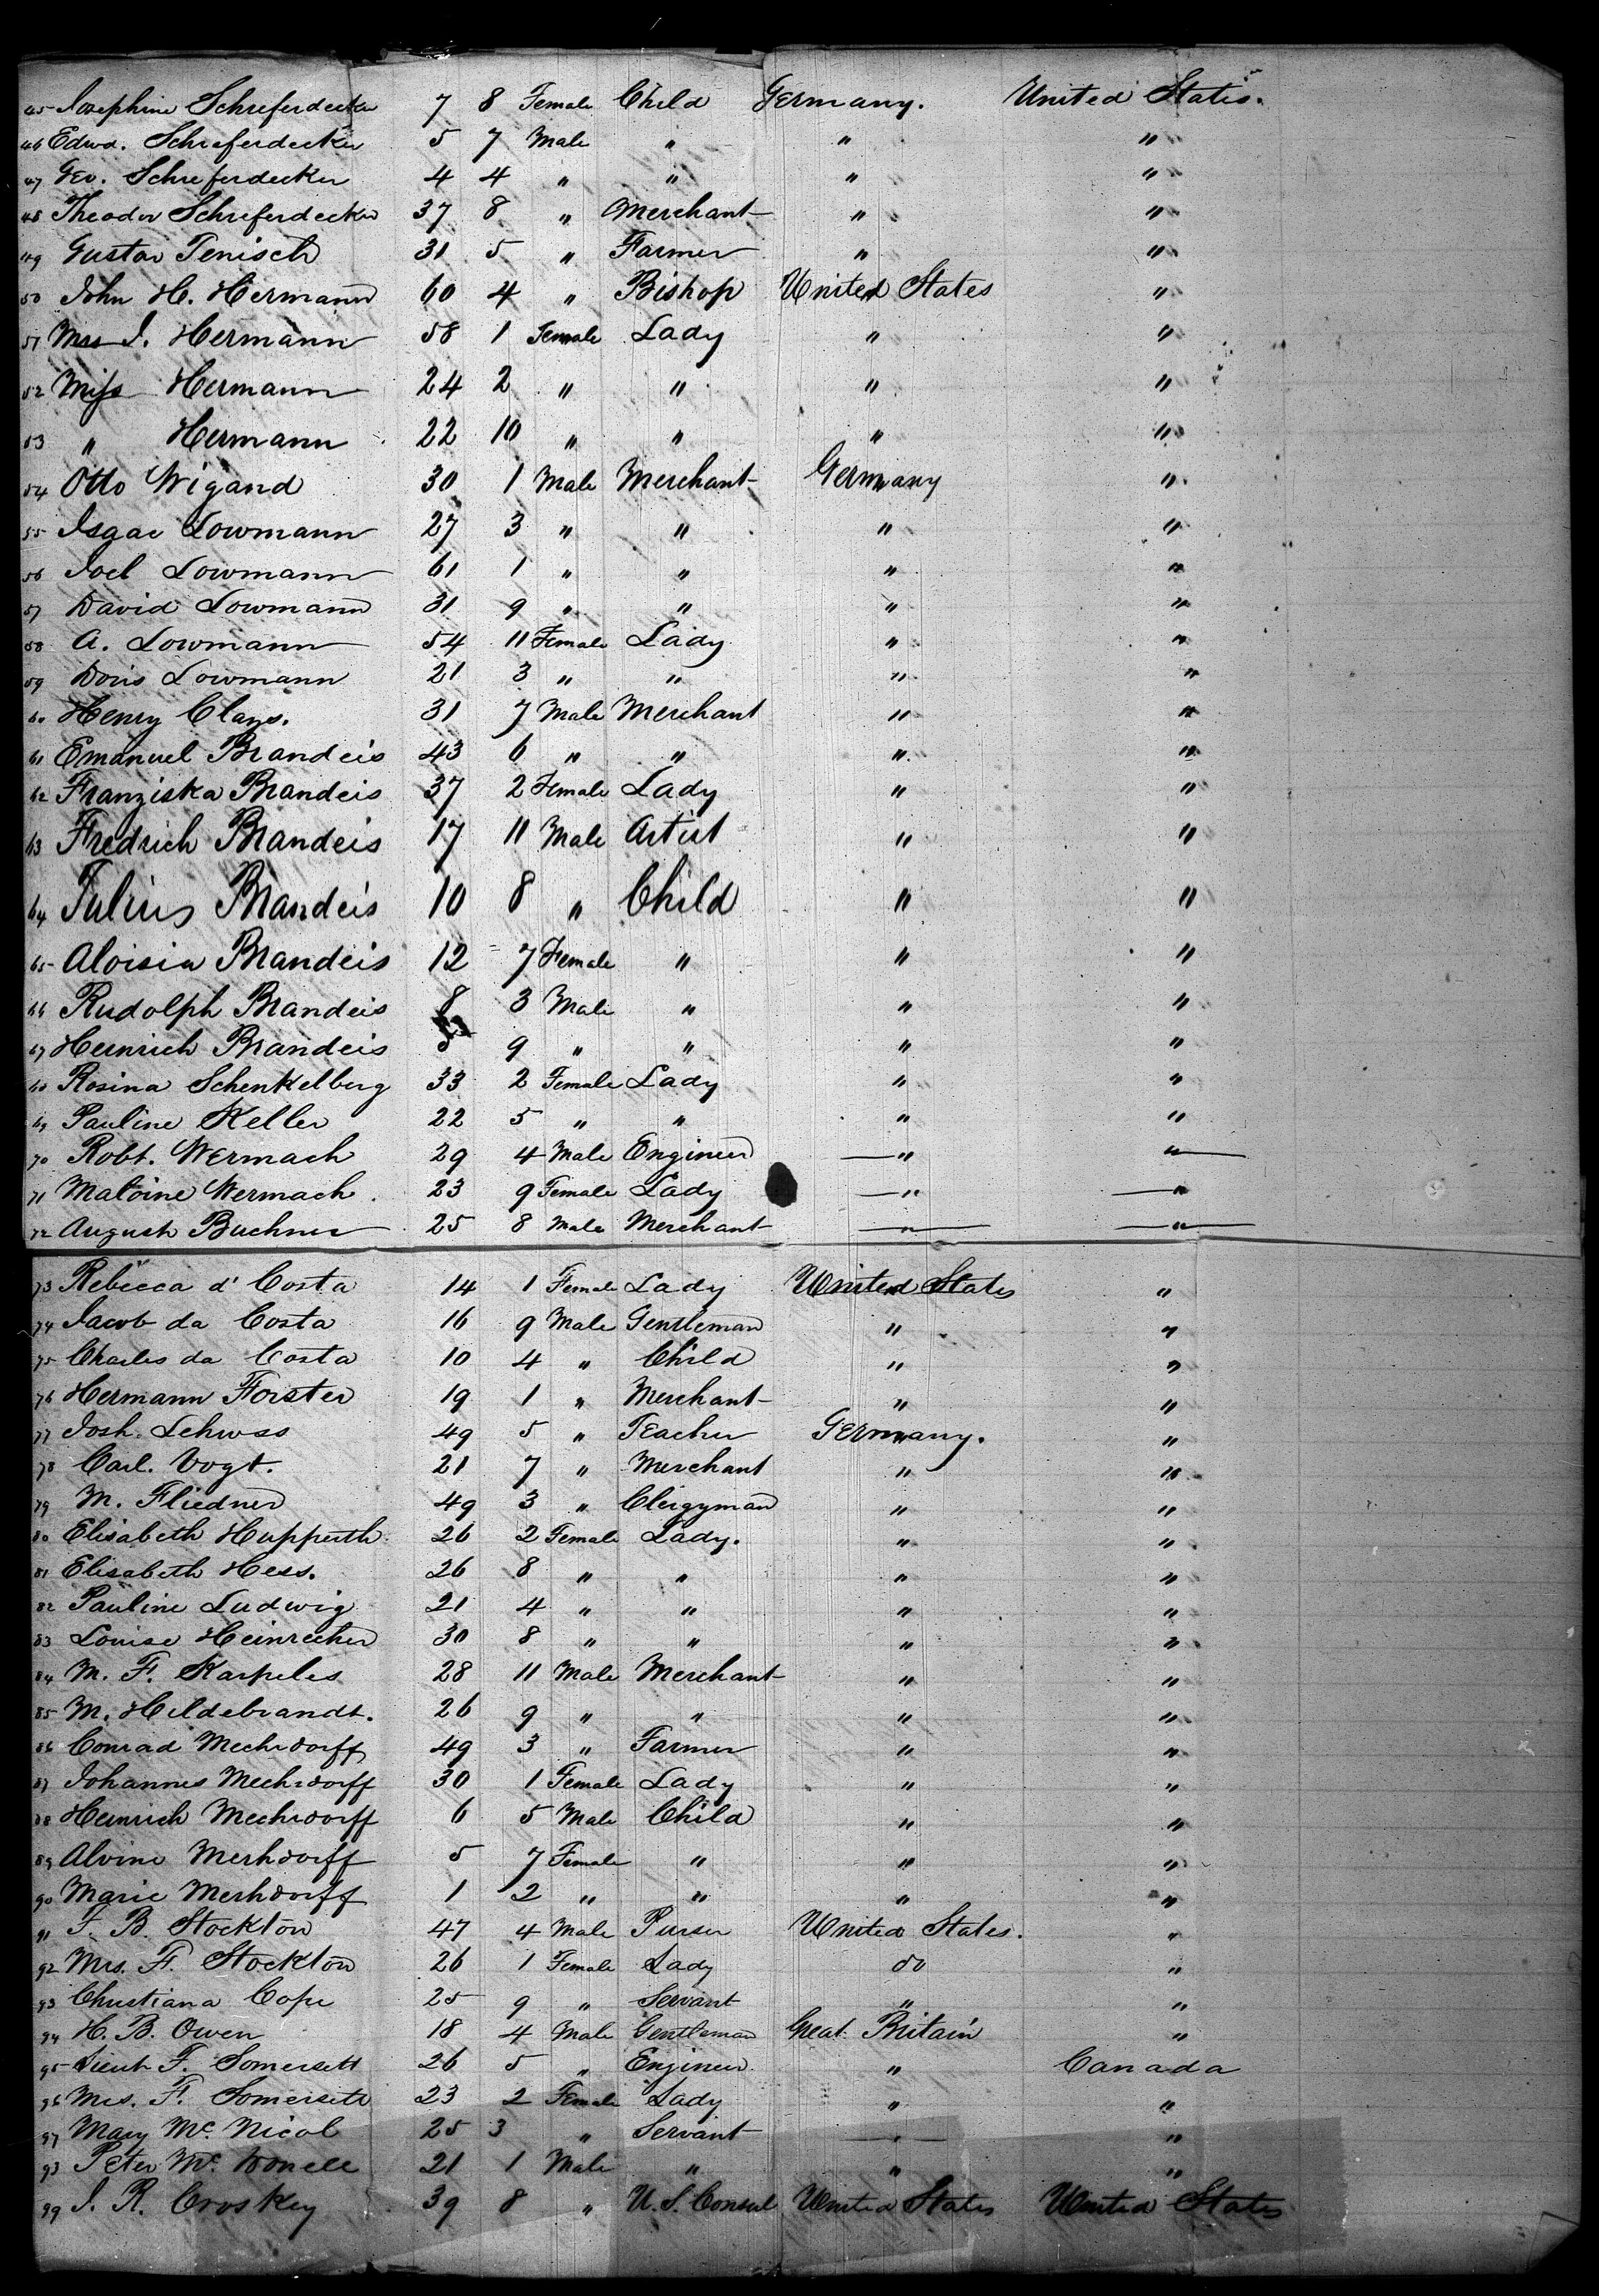 45 Josephine Schreferdecker 7 8 Female Child Germany. United States.
46 Edwd. Schreferdecker 5 7 Male " " "
47 Geo. Schreferdecker 4 4 " " " "
48 Theodor Schreferdecker 37 8 " Merchant " "
49 Gustav Tenisch 31 5 " Farmer " "
50 John H. Hermann 60 4 " Bishop United States "
51 Mrs J. Hermann 58 1 Female Lady " "
52 Miss Hermann 24 2 " " " "
53 " Hermann 22 10 " " " "
54 Otto Wigand 30 1 Male Merchant Germany "
55 Isaac Lowmann 27 3 " " " "
56 Joel Lowmann 61 1 " " " "
57 David Lowmann 31 9 " " " "
58 A. Lowmann 54 11 Female Lady " "
59 Doris Lowmann 21 3 " " " "
60 Henry Clays. 31 7 Male Merchant " "
61 Emanuel Brandeis 43 6 " " " "
62 Franziska Brandeis 37 2 Female Lady " "
63 Fredrich Brandeis 17 11 Male Artist " "
64 Julius Brandeis 10 8 " Child " "
65 Aloisia Brandeis 12 7 Female " " "
66 Rudolph Brandeis 8 3 Male " " "
67 Heinrich Brandeis 5 9 " " " "
68 Rosina Schenkelberg 33 2 Female Lady " "
69 Pauline Keller 22 5 " " " "
70 Robt. Wermach 29 4 Male Engineer " "
71 Matoine Wermach. 23 9 Female Lady " "
72 August Buchner 25 8 Male Merchant " "
73 Rebecca d' Costa 14 1 Female Lady United States "
74 Jacob da Costa 16 9 Male Gentleman " "
75 Charles da Costa 10 4 " Child " "
76 Hermann Forster 19 1 " Merchant " "
77 Josh. Lehwss 49 5 " Teacher Germany. "
78 Carl. Vogt. 21 7 " Merchant " "
79 M. Fliedner 49 3 " Clergyman " "
80 Elisabeth Hupperth 26 2 Female Lady. " "
81 Elisabeth Hess. 26 8 " " " "
82 Pauline Ludwig 21 4 " " " "
83 Louise Heinrecher 30 8 " " " "
84 M. F. Karpeles 28 11 Male Merchant " "
85 M. Hildebrandt. 26 9 " " " "
86 Conrad Mechrdorff 49 3 " Farmer " "
87 Johannes Mechrdorff 30 1 Female Lady " "
88 Heinrich Mechrdorff 6 5 Male Child " "
89 Alvine Merhdorff 5 7 Female " " "
90 Marie Merhdorff 1 2 " " " "
91 F. B. Stockton 47 4 Male Purser United States. "
92 Mrs. F. Stockton 26 1 Female Lady do "
93 Christiana Cope 25 9 " Servant " "
94 H. B. Owen 18 4 Male Gentleman Great Britain "
95 Lieut F. Somersett 26 5 " Engineer " Canada
96 Mrs. F. Somersett 23 2 Female Lady " "
97 Mary Mc. Nicol 25 3 " Servant " "
93 Peter Mc. Donell 21 1 Male " " "
99 J. R. Croskey 39 8 " U.S. Consul United States United States